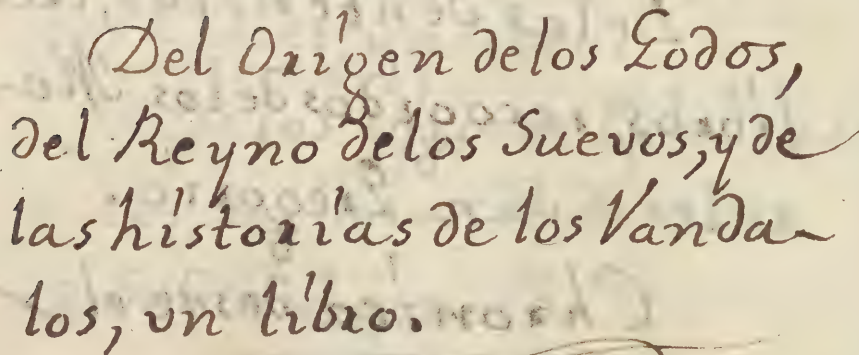 Del Orígen delos Godos,
del Reyno delos Suevos, y de
las histórías de los Vanda-
los, un líbro.